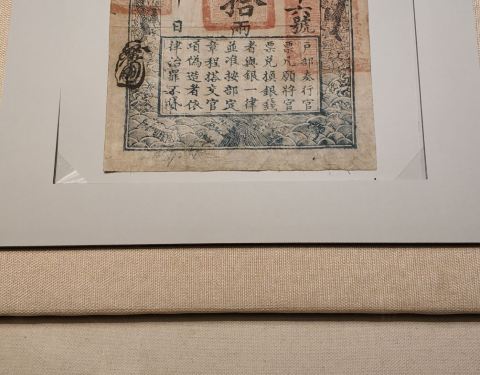 六號
拾兩
日
戶部奏行官
票凡願將官
票兌換銀錢
者與銀一律
並准按部定
章程搭交官
項偽造者依
律治罪不貸